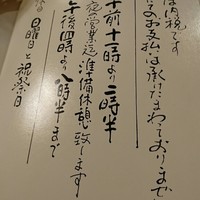 は内税です
てのお支払は承けたまわっておりませ
午前十一時より二時半
迄営業迄準備休憩致します
午後四時より八時半まで
日曜日と祝祭日